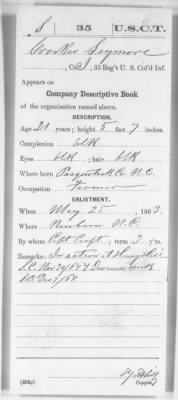 S 35 U.S.C.T.
Crooker Seymore
, Co. I, 35 Reg't U. S. Col'd Inf.
Appears on
Company Descriptive Book
of the organization named above.
DESCRIPTION.
Age 21 years; height 5 feet 7 inches.
Complexion blk
Eyes blk ; hair blk
Where born Perquimans Co. N.C.
Occupation Farmer
ENLISTMENT.
When May 25 , 1863.
Where Newbern N.C.
By whom Capt Croft ; term 3 y'rs.
Remarks: In action at Honeyhill
S.C. Nov 30/64
S.C. Dec 7/64
(383g) Copyist.